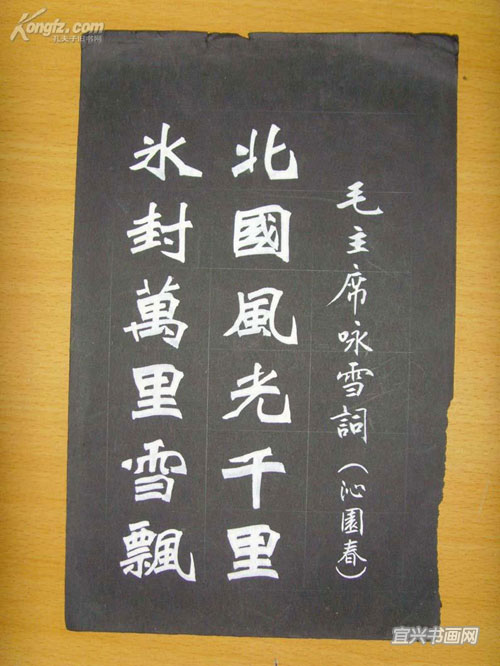 毛主席咏雪詞(沁園春)
北國風光千里
氷封萬里雪飄
Kongfz.com
孔夫子旧书网
宜兴书画网